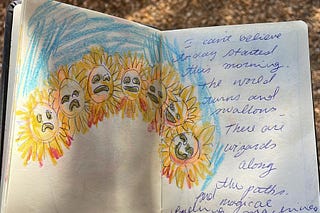 I can't believe
today started
this morning.
The world
turns and
swallows.
There are
wizards
along
the paths.
magical